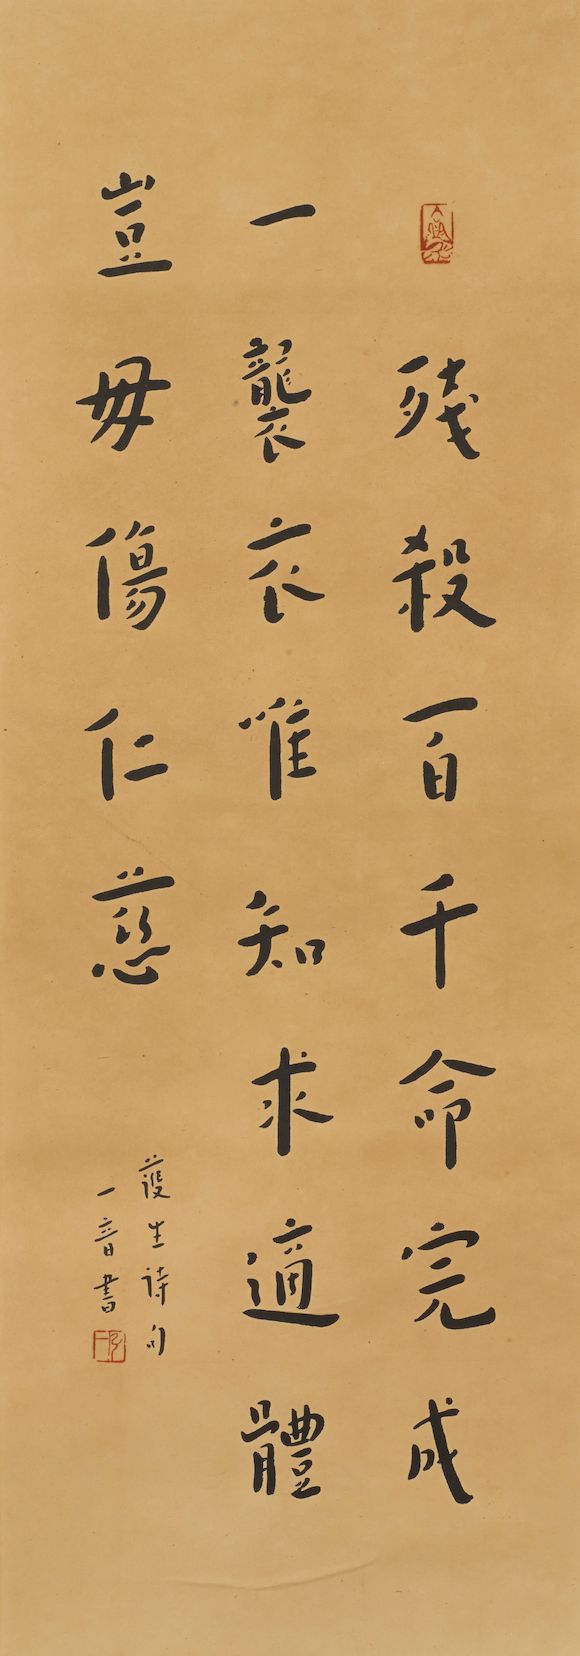 殘殺百千命完成
一襲衣唯知求適體
豈毋傷仁慈
護生詩句
一音書
弘一